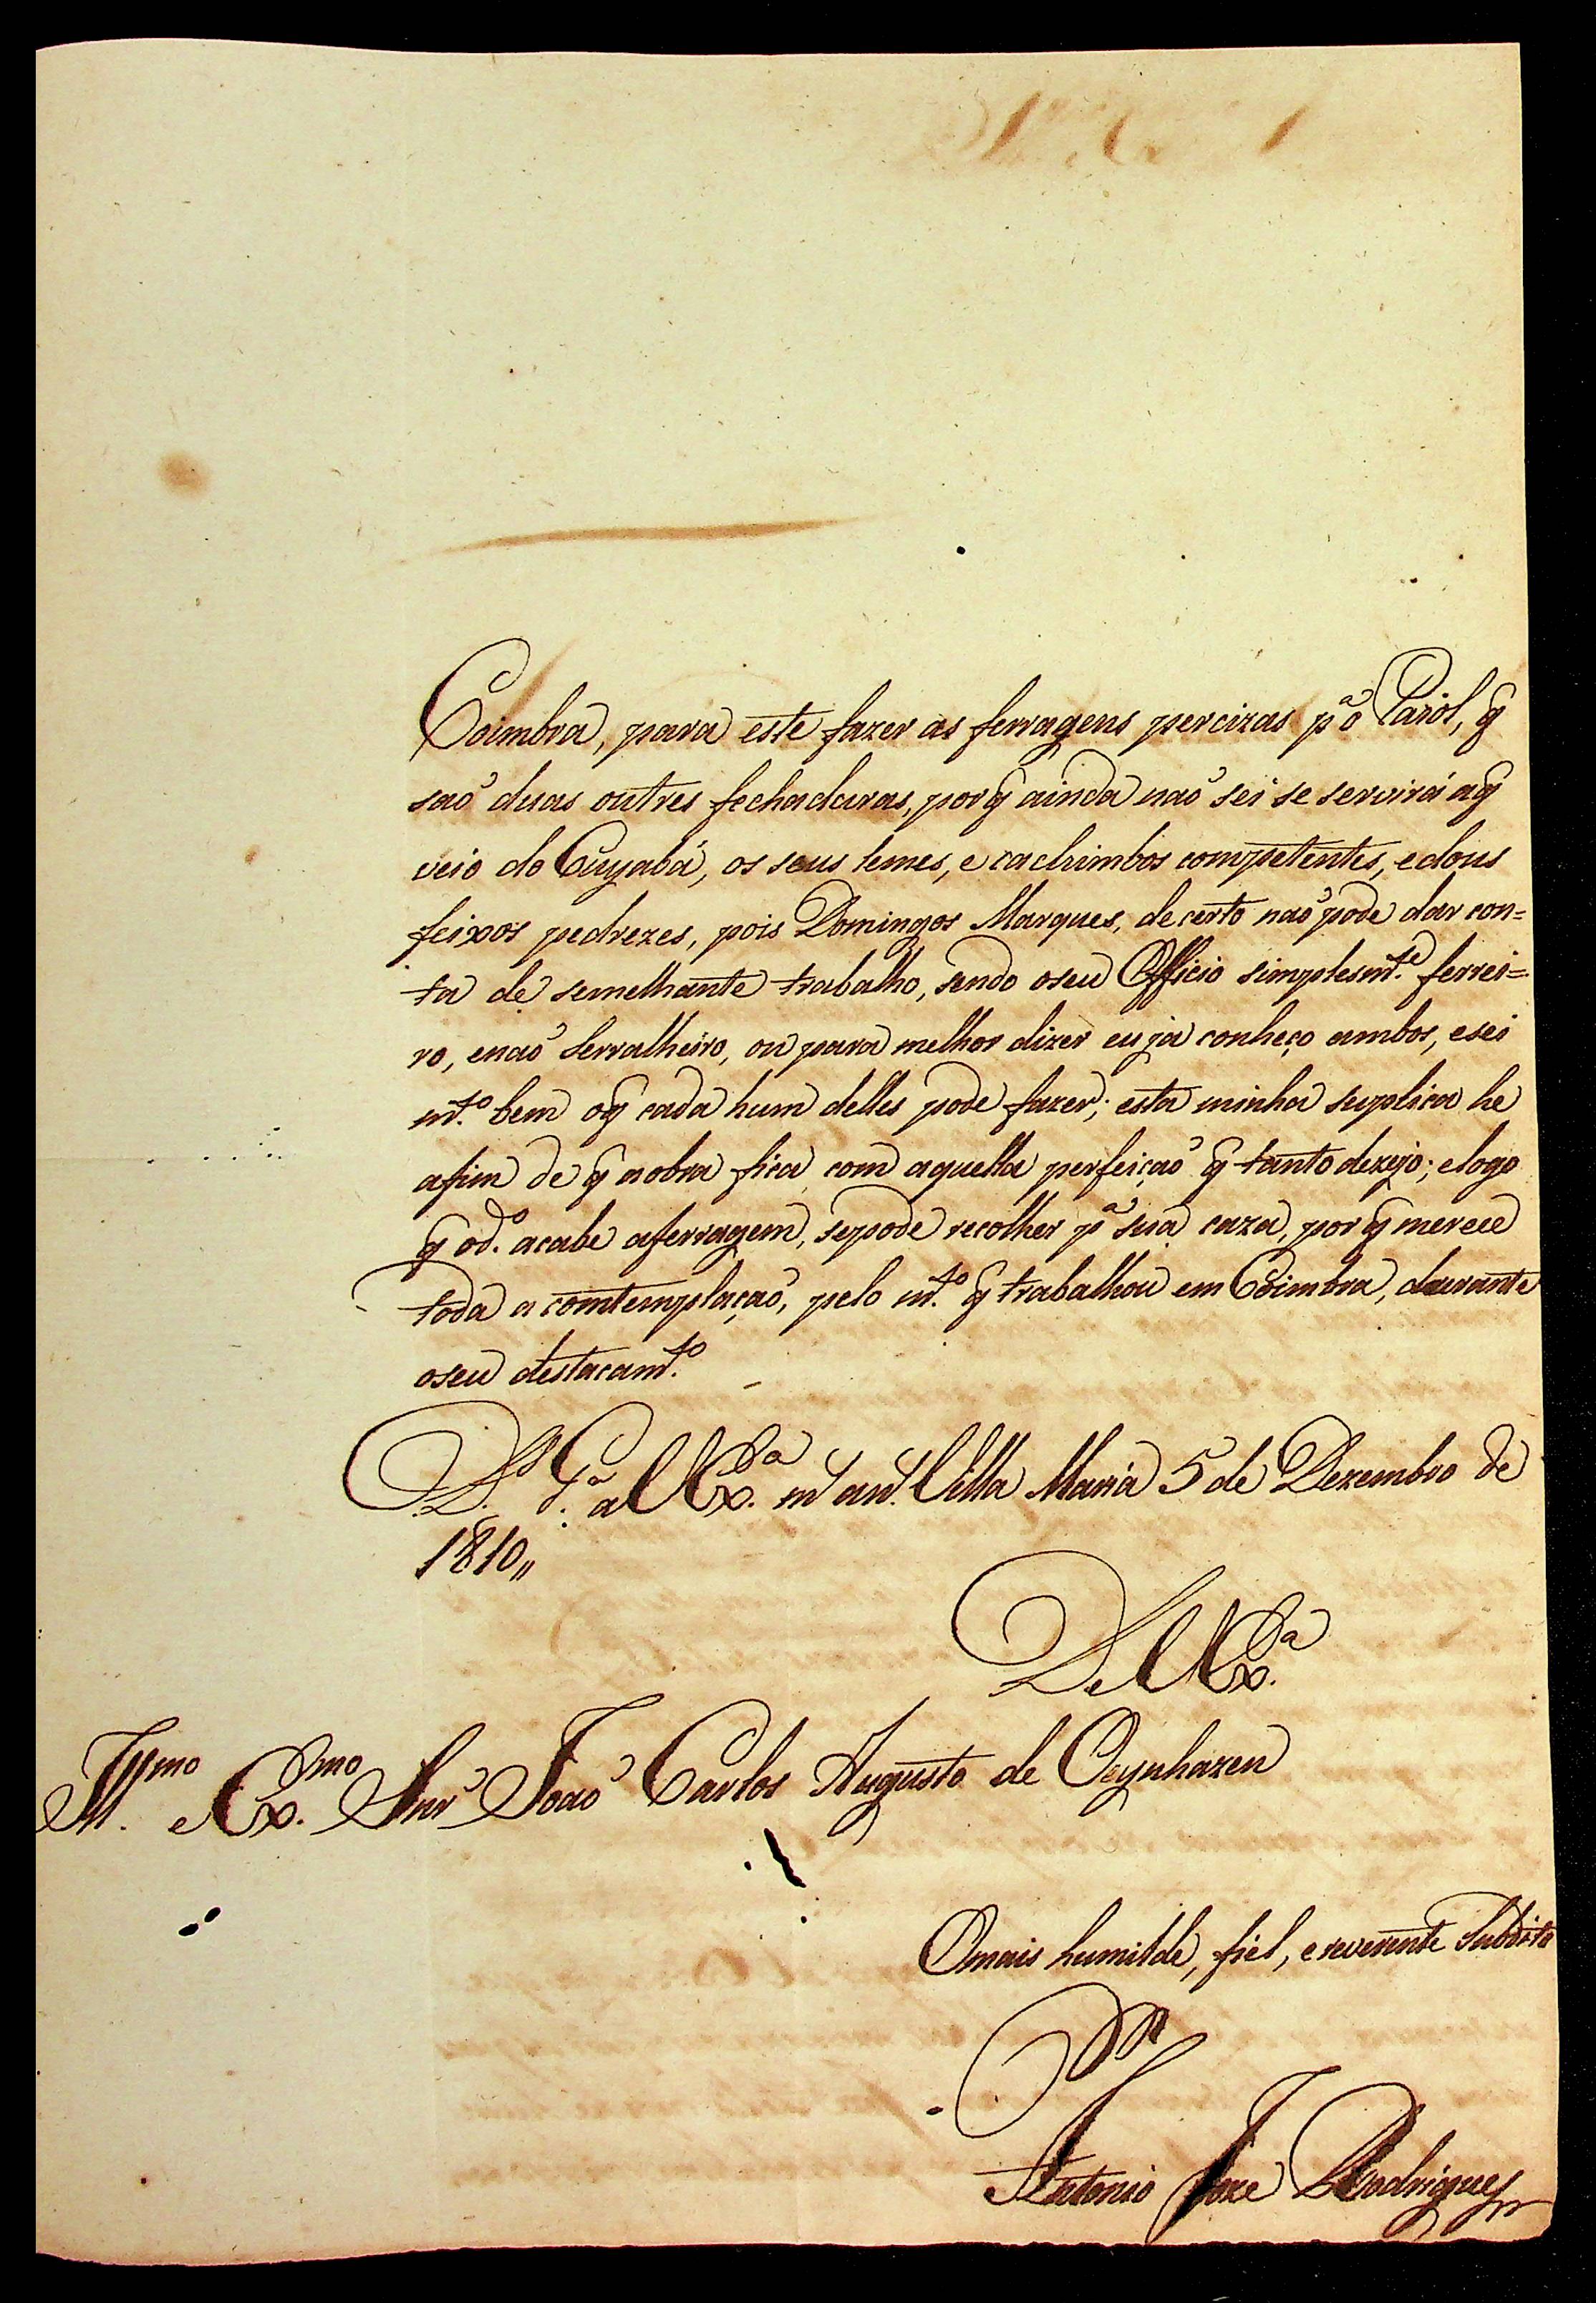 Coimbra, para este fazer as ferragens percizas pª o Paiól, q̃
saõ duas outres fechaduras, porq̃ ainda naõ sei se servirá aq̃
veio do Cuyabá, os seus lemes, e cachimbos competentes, e dous
feixos pedrezes, pois Domingos Marques, de certo naõ pode dar con=
ta de semelhante trabalho, sendo oseu Officio simplesm.te ferrei=
ro, enaõ Serralheiro, ou para melhor dizer eu ja conheço ambos, esei
m.to bem oq̃ cada hum delles pode fazer; esta minha suplica he
afim de q̃ aobra fica com aquella perfeiçaõ q̃ tanto dezejo; elogo
q̃ od.o acabe aferragem, sepode recolher pª sua caza, porq̃ merece
toda a comtemplaçaõ, pelo m.to q̃ trabalhou em Coimbra, durante
oseu destacam.to
D.s G.e a V Ex.ª m.s an.s Villa Maria 5 de Dezembro de
1810,,
De V Ex.ª
Ill.mo e Ex.mo Snr' Joaõ Carlos Augusto de Oeynhazen
Omais humilde, fiel, e reverente Subdito
Antonio Joze Rodrigues